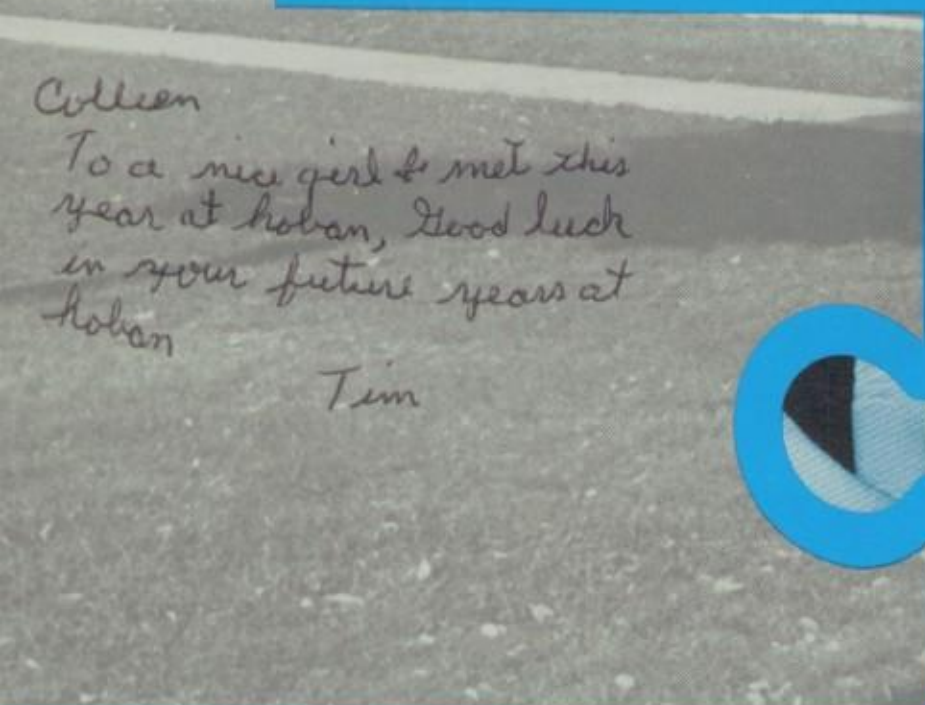 Colleen
To a nice girl I met this
year at hoban, Good luck
in your future years at
hoban
Tim